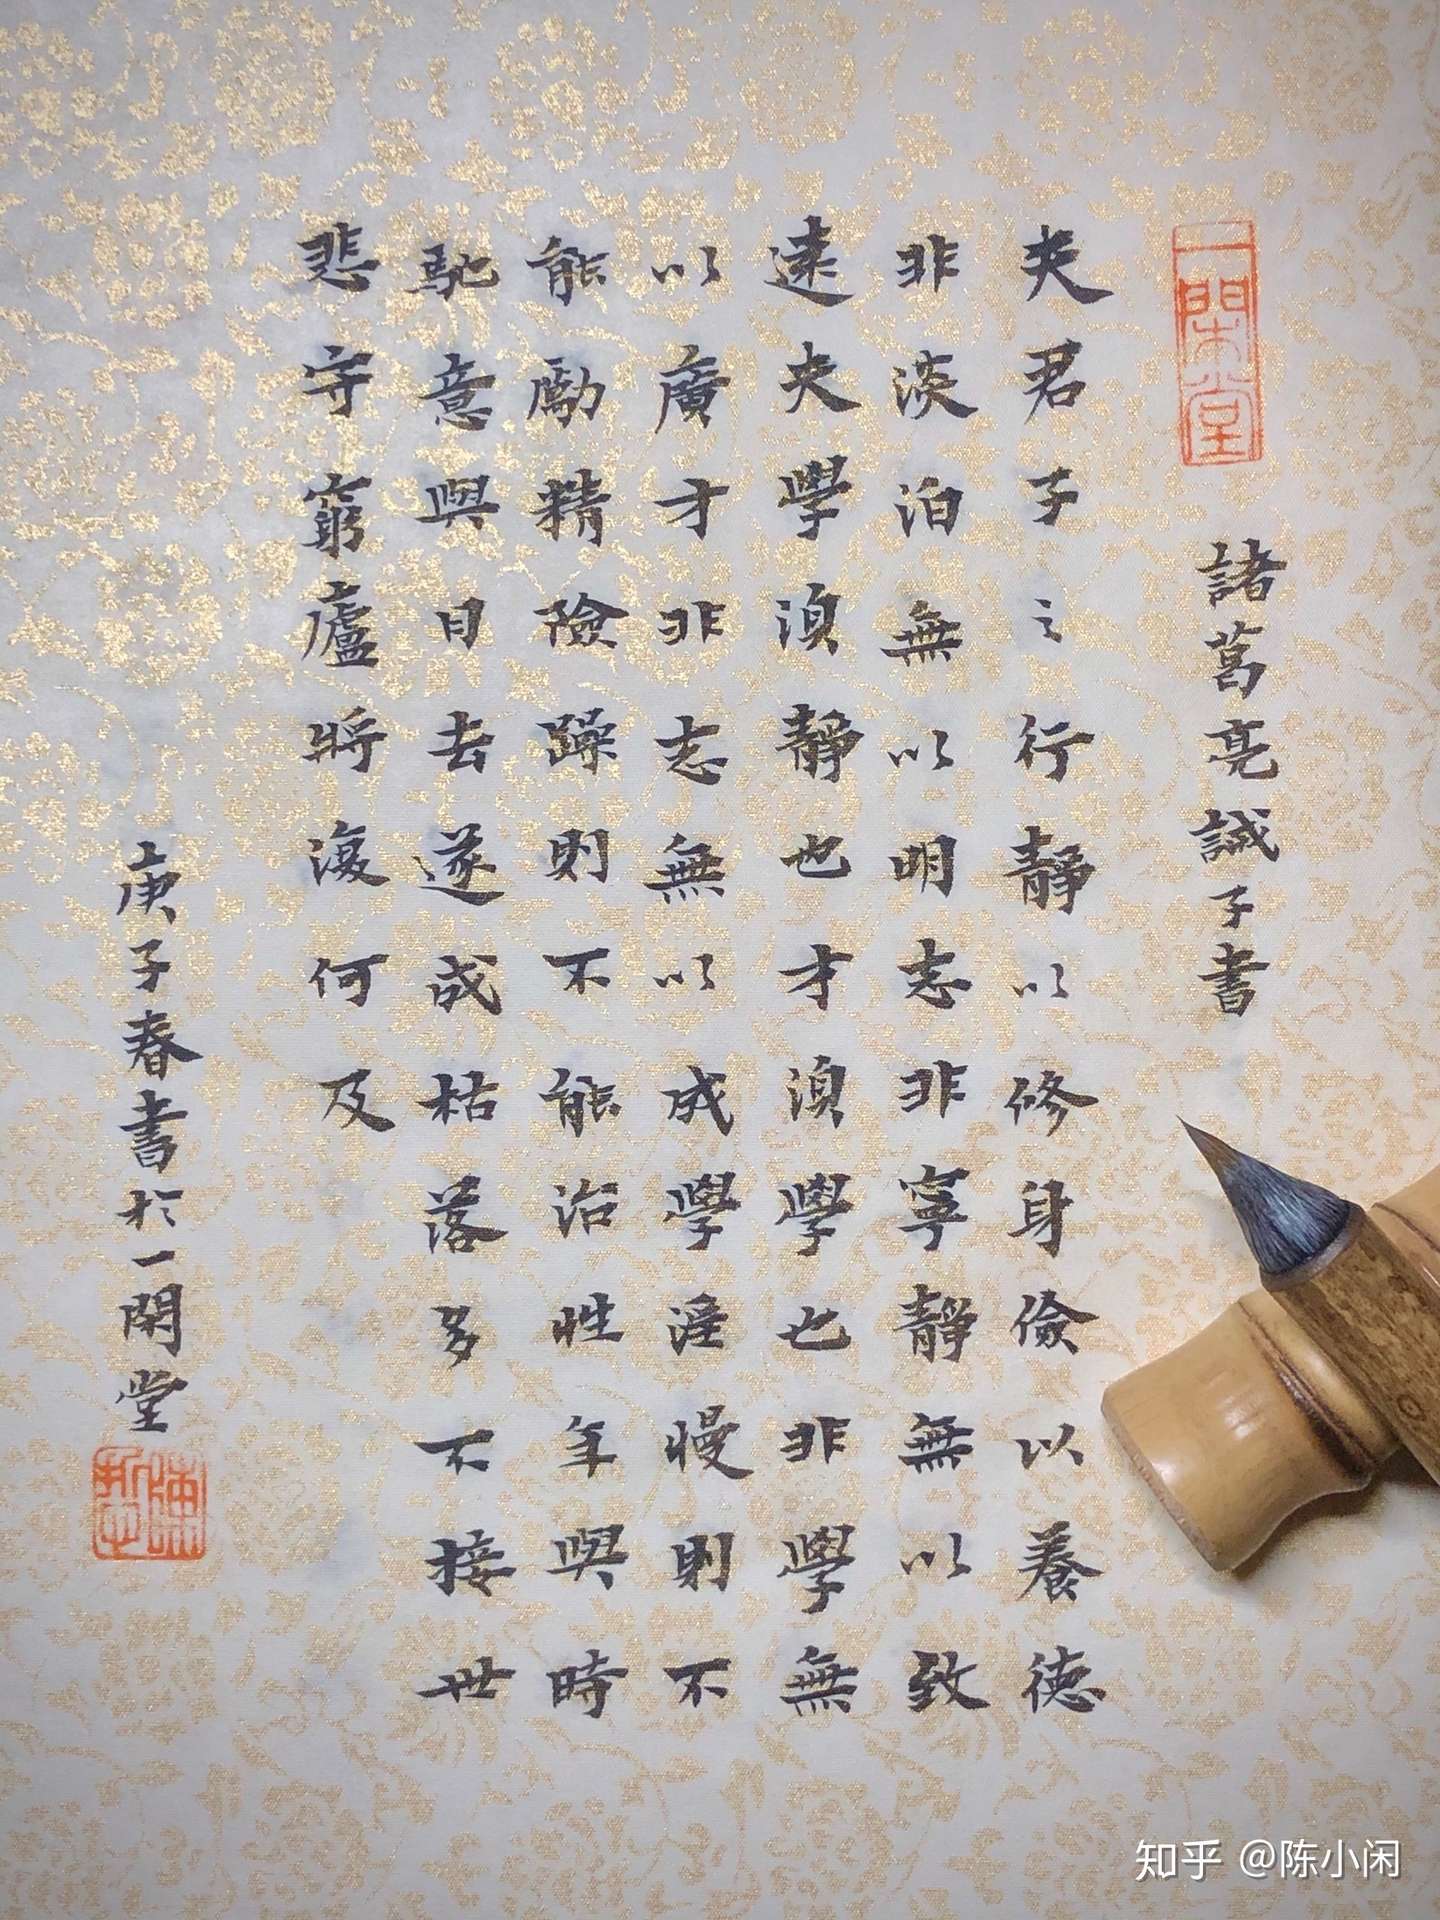 一閑堂
諸葛亮誡子書
夫君子之行靜以修身儉以養德
非淡泊無以明志非寧靜無以致
遠夫學須靜也才須學也非學無
以廣才非志無以成學淫慢則不
能勵精險躁則不能治性年與時
馳意與日去遂成枯落多不接世
悲守窮廬將復何及
庚子春書於一閑堂
知乎 @陈小闲